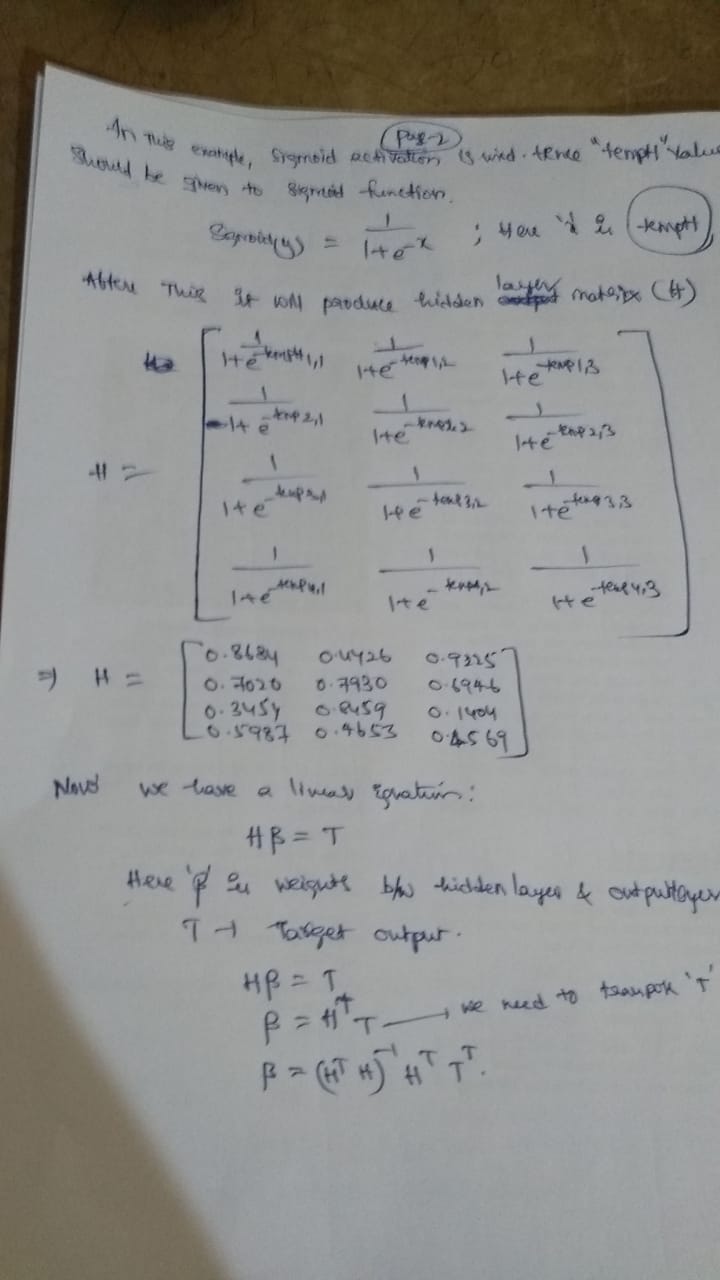 Page-2
In this example, sigmoid activation is used. Hence "tempH" value
should be given to sigmoid function.
Sigmoid(x) = 1/(1+e^-x) ; Here 'x' is tempH
After this it will produce hidden layer matrix (H)
H = [ 1/(1+e^-tempH1,1) 1/(1+e^-temp1,2) 1/(1+e^-temp1,3)
1/(1+e^-temp2,1) 1/(1+e^-temp2,2) 1/(1+e^-temp2,3)
1/(1+e^-temp3,1) 1/(1+e^-temp3,2) 1/(1+e^-temp3,3)
1/(1+e^-temp4,1) 1/(1+e^-temp4,2) 1/(1+e^-temp4,3) ]
⇒ H = [ 0.8684 0.4426 0.9325
0.7020 0.7930 0.6946
0.3454 0.8459 0.1404
0.5987 0.4653 ]
Now we have a linear Equation:
Hβ = T
Here 'β' is weights b/w hidden layer & output layer
T → Target output.
Hβ = T
β = H^+ T → we need to transpose 'T'
β = (H^T H)^-1 H^T T^T.